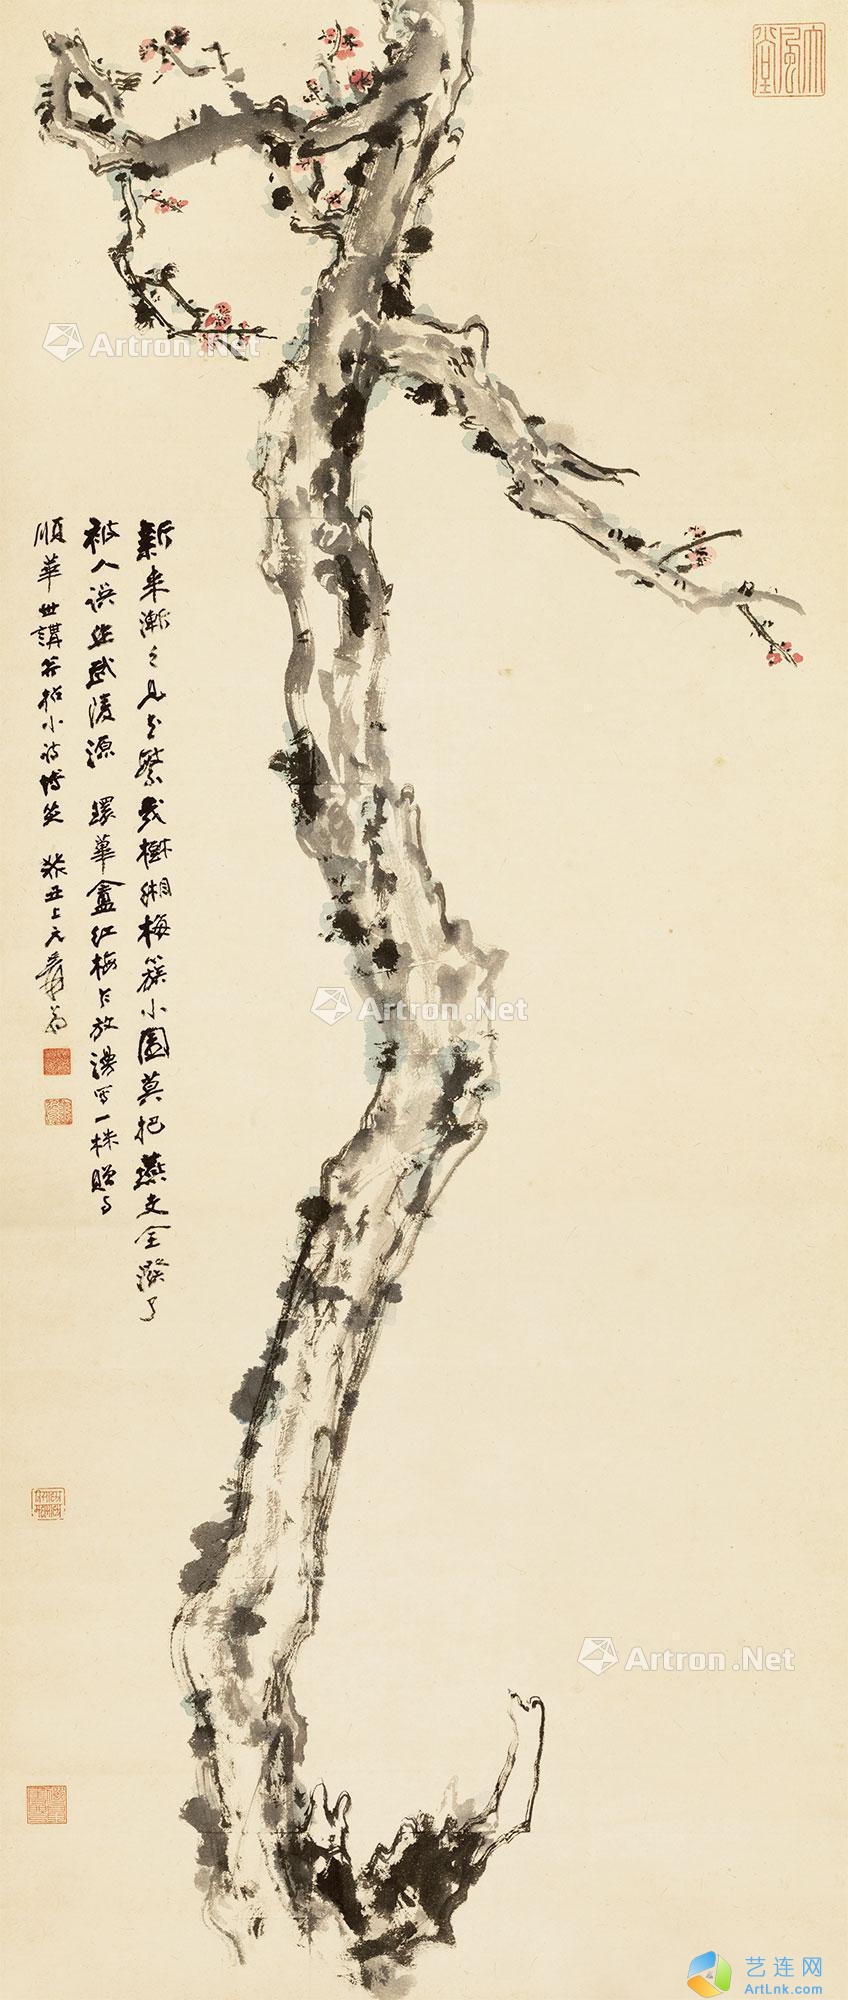 大風堂
新來漸〻見花繁幾樹緗梅簇小園莫把燕支全潑了
被人誤作武陵源 環蓽盦紅梅乍放漫寫一株贈與
順華世講並拈小詩博笑 癸丑上元爰翁
Artron.Net
Artron.Net
Artron.Net
Artron.Net
艺连网
ArtLnk.com